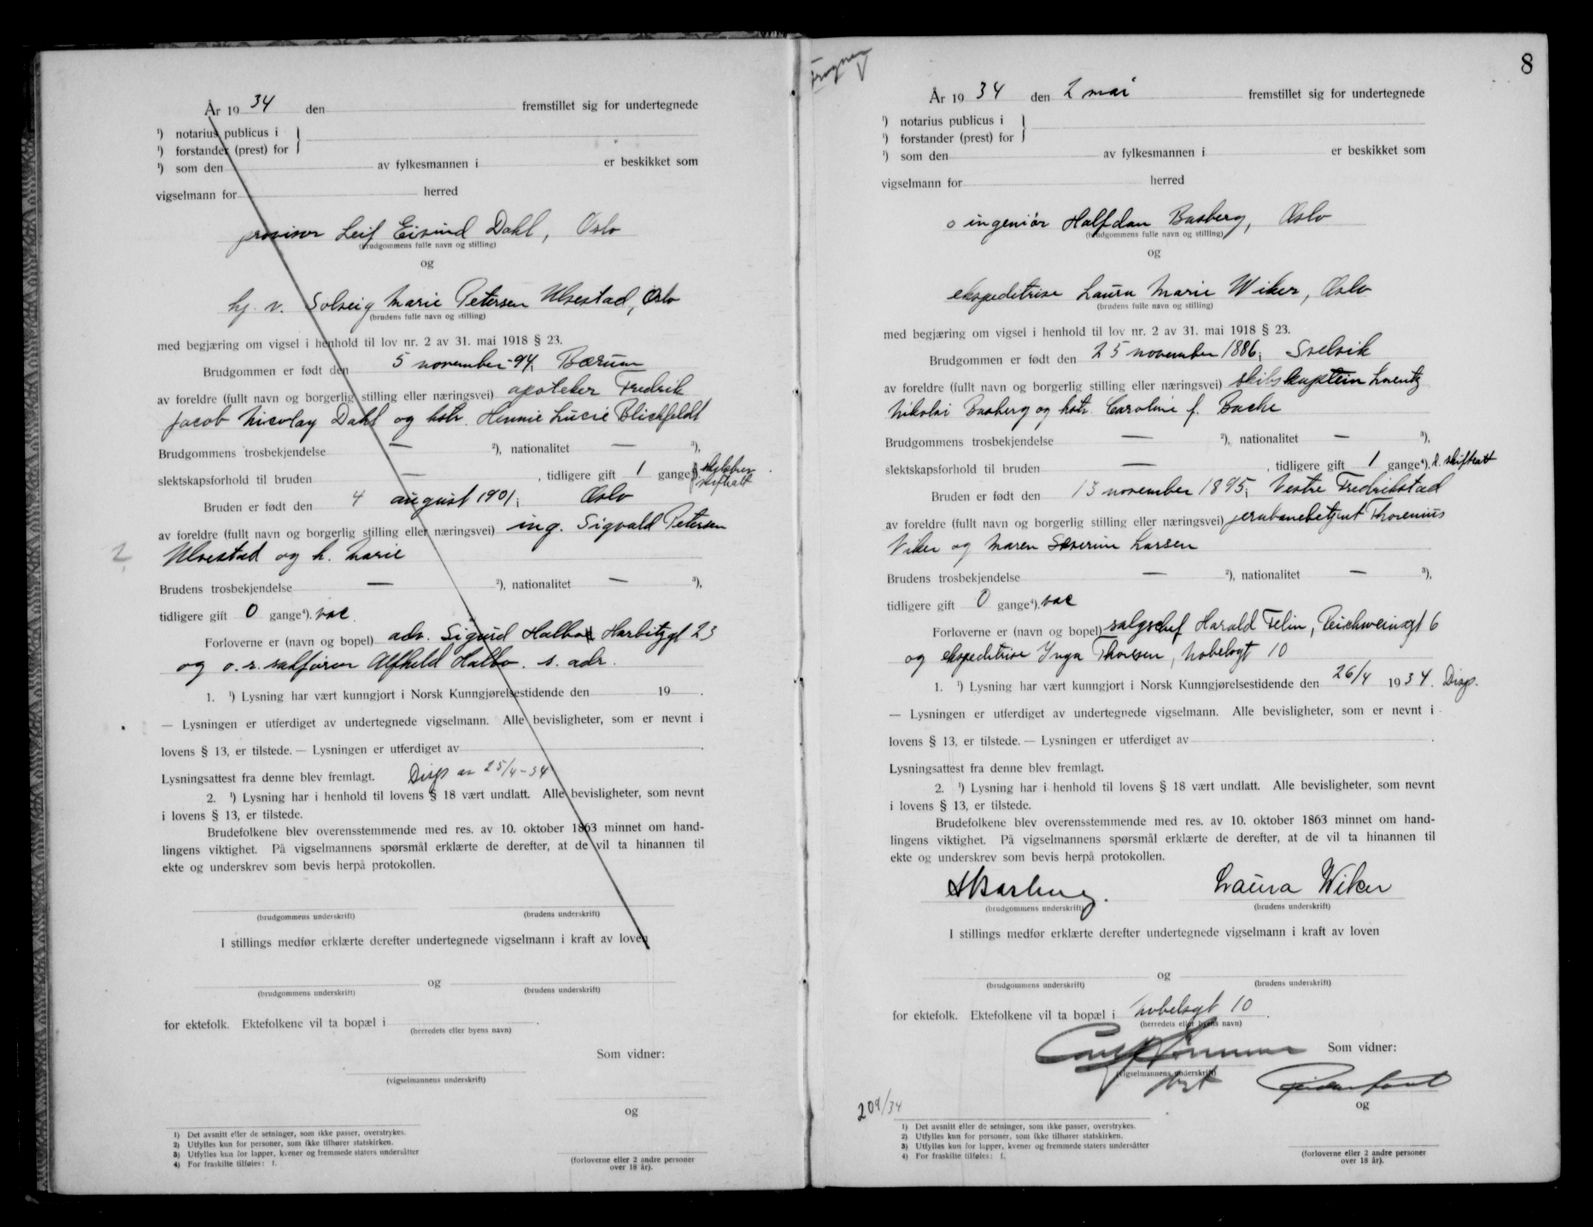 År 19 34 den fremstillet sig for undertegnede
¹) notarius publicus i
¹) forstander (prest) for
¹) som den av fylkesmannen i er beskikket som
vigselmann for herred
provisor Leif Eivind Dahl, Oslo
(brudgommens fulle navn og stilling)
og
hj. v. Solveig Marie Petersen Ulvestad, Oslo
(brudens fulle navn og stilling)
med begjæring om vigsel i henhold til lov nr. 2 av 31. mai 1918 § 23.
Brudgommen er født den 5 november -94, Bærum
av foreldre (fullt navn og borgerlig stilling eller næringsvei) apoteker Fredrik
Jacob Nicolay Dahl og hstr. Hennie Lucie Blichfeldt
Brudgommens trosbekjendelse — ²), nationalitet — ³),
slektskapsforhold til bruden — , tidligere gift 1 gange⁴) skiftatt
Bruden er født den 4 august 1901, Oslo
av foreldre (fullt navn og borgerlig stilling eller næringsvei) ing. Sigvald Petersen
Ulvestad og h. Marie
2
Brudens trosbekjendelse — ²), nationalitet — ³),
tidligere gift 0 gange⁴). vac.
Forloverne er (navn og bopel) adv. Sigurd Halbo Harbitzgt 23
og o.r.sakfører Alfhild Halbo. s. adr.
1. ¹) Lysning har vært kunngjort i Norsk Kunngjørelsestidende den 19 .
— Lysningen er utferdiget av undertegnede vigselmann. Alle bevisligheter, som er nevnt i
lovens § 13, er tilstede. — Lysningen er utferdiget av .
Lysningsattest fra denne blev fremlagt. Disp av 25/4-34
2. ¹) Lysning har i henhold til lovens § 18 vært undlatt. Alle bevisligheter, som nevnt
i lovens § 13, er tilstede.
Brudefolkene blev overensstemmende med res. av 10. oktober 1863 minnet om hand-
lingens viktighet. På vigselmannens spørsmål erklærte de derefter, at de vil ta hinannen til
ekte og underskrev som bevis herpå protokollen.
(brudgommens underskrift) (brudens underskrift)
I stillings medfør erklærte derefter undertegnede vigselmann i kraft av loven
og
(brudgommens underskrift) (brudens underskrift)
for ektefolk. Ektefolkene vil ta bopæl i .
(herredets eller byens navn)
Som vidner:
(vigselmannens underskrift)
og
1) Det avsnitt eller de setninger, som ikke passer, overstrykes.
2) Utfylles kun for personer, som ikke tilhører statskirken.
3) Utfylles kun for lapper, kvener og fremmede staters undersåtter
4) For fraskilte tilføies: f.
(forloverne eller 2 andre personer
over 18 år).
Frogner
8
År 19 34 den 2 mai fremstillet sig for undertegnede
¹) notarius publicus i
¹) forstander (prest) for
¹) som den av fylkesmannen i er beskikket som
vigselmann for herred
o ingeniør Halfdan Basberg, Oslo
(brudgommens fulle navn og stilling)
og
ekspeditrise Laura Marie Wiker, Oslo
(brudens fulle navn og stilling)
med begjæring om vigsel i henhold til lov nr. 2 av 31. mai 1918 § 23.
Brudgommen er født den 25 november 1886, Svelvik
av foreldre (fullt navn og borgerlig stilling eller næringsvei) skibskaptein Lorentz
Nikolai Basberg og hstr. Caroline f. Bache
Brudgommens trosbekjendelse — ²), nationalitet — ³),
slektskapsforhold til bruden , tidligere gift 1 gange⁴). skifteatt
Bruden er født den 13 november 1895, Vestre Fredrikstad
av foreldre (fullt navn og borgerlig stilling eller næringsvei) jernbanebetjent Thorenius
Viker og Maren Severine Larsen
Brudens trosbekjendelse — ²), nationalitet — ³),
tidligere gift 0 gange⁴). vac
Forloverne er (navn og bopel) salgschef Harald Felin, Reichweingt 6
og ekspeditrise Inga Thoresen, Nobelsgt 10
1. ¹) Lysning har vært kunngjort i Norsk Kunngjørelsestidende den 26/4 1934. Disp.
— Lysningen er utferdiget av undertegnede vigselmann. Alle bevisligheter, som er nevnt i
lovens § 13, er tilstede. — Lysningen er utferdiget av .
Lysningsattest fra denne blev fremlagt.
2. ¹) Lysning har i henhold til lovens § 18 vært undlatt. Alle bevisligheter, som nevnt
i lovens § 13, er tilstede.
Brudefolkene blev overensstemmende med res. av 10. oktober 1863 minnet om hand-
lingens viktighet. På vigselmannens spørsmål erklærte de derefter, at de vil ta hinannen til
ekte og underskrev som bevis herpå protokollen.
HBasberg. Laura Wiker
(brudgommens underskrift) (brudens underskrift)
I stillings medfør erklærte derefter undertegnede vigselmann i kraft av loven
og
(brudgommens underskrift) (brudens underskrift)
for ektefolk. Ektefolkene vil ta bopæl i Nobelsgt 10.
(herredets eller byens navn)
Som vidner:
(vigselmannens underskrift)
209/34
og
1) Det avsnitt eller de setninger, som ikke passer, overstrykes.
2) Utfylles kun for personer, som ikke tilhører statskirken.
3) Utfylles kun for lapper, kvener og fremmede staters undersåtter
4) For fraskilte tilføies: f.
(forloverne eller 2 andre personer
over 18 år).